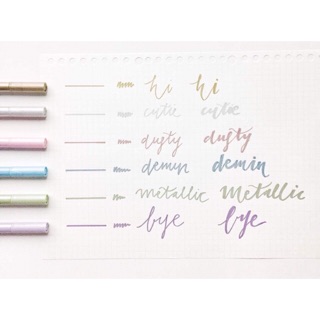 hi hi
cutie cutie
dusty dusty
demin demin
metallic metallic
bye bye